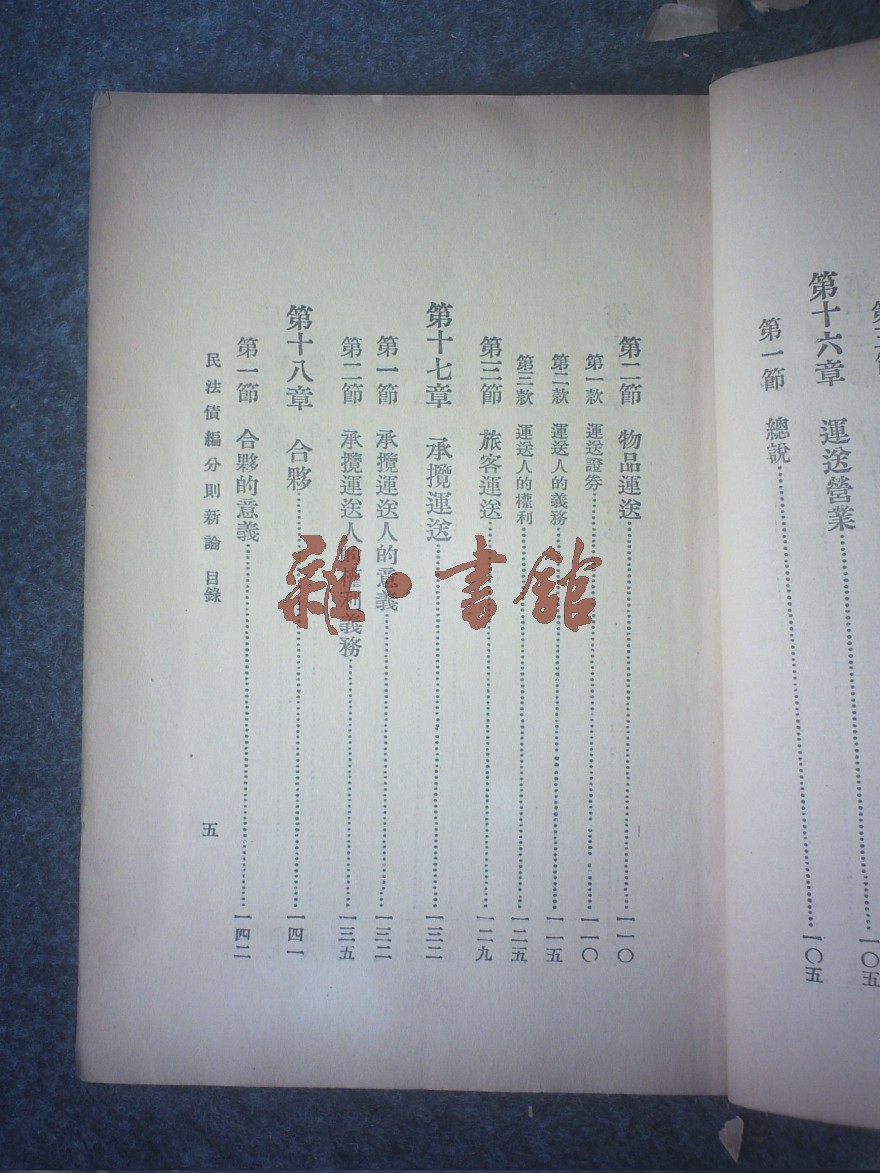 第十六章　運送營業……一〇五
第一節　總說……一〇五
第二節　物品運送……一一〇
第一款　運送證券……一一〇
第二款　運送人的義務……一一五
第三款　運送人的權利……一二五
第三節　旅客運送……一二九
第十七章　承攬運送……一三二
第一節　承攬運送人的意義……一三二
第二節　承攬運送人的權利義務……一三五
第十八章　合夥……一四一
第一節　合夥的意義……一四二
民法債編分則新論　目錄　五
雜·書館